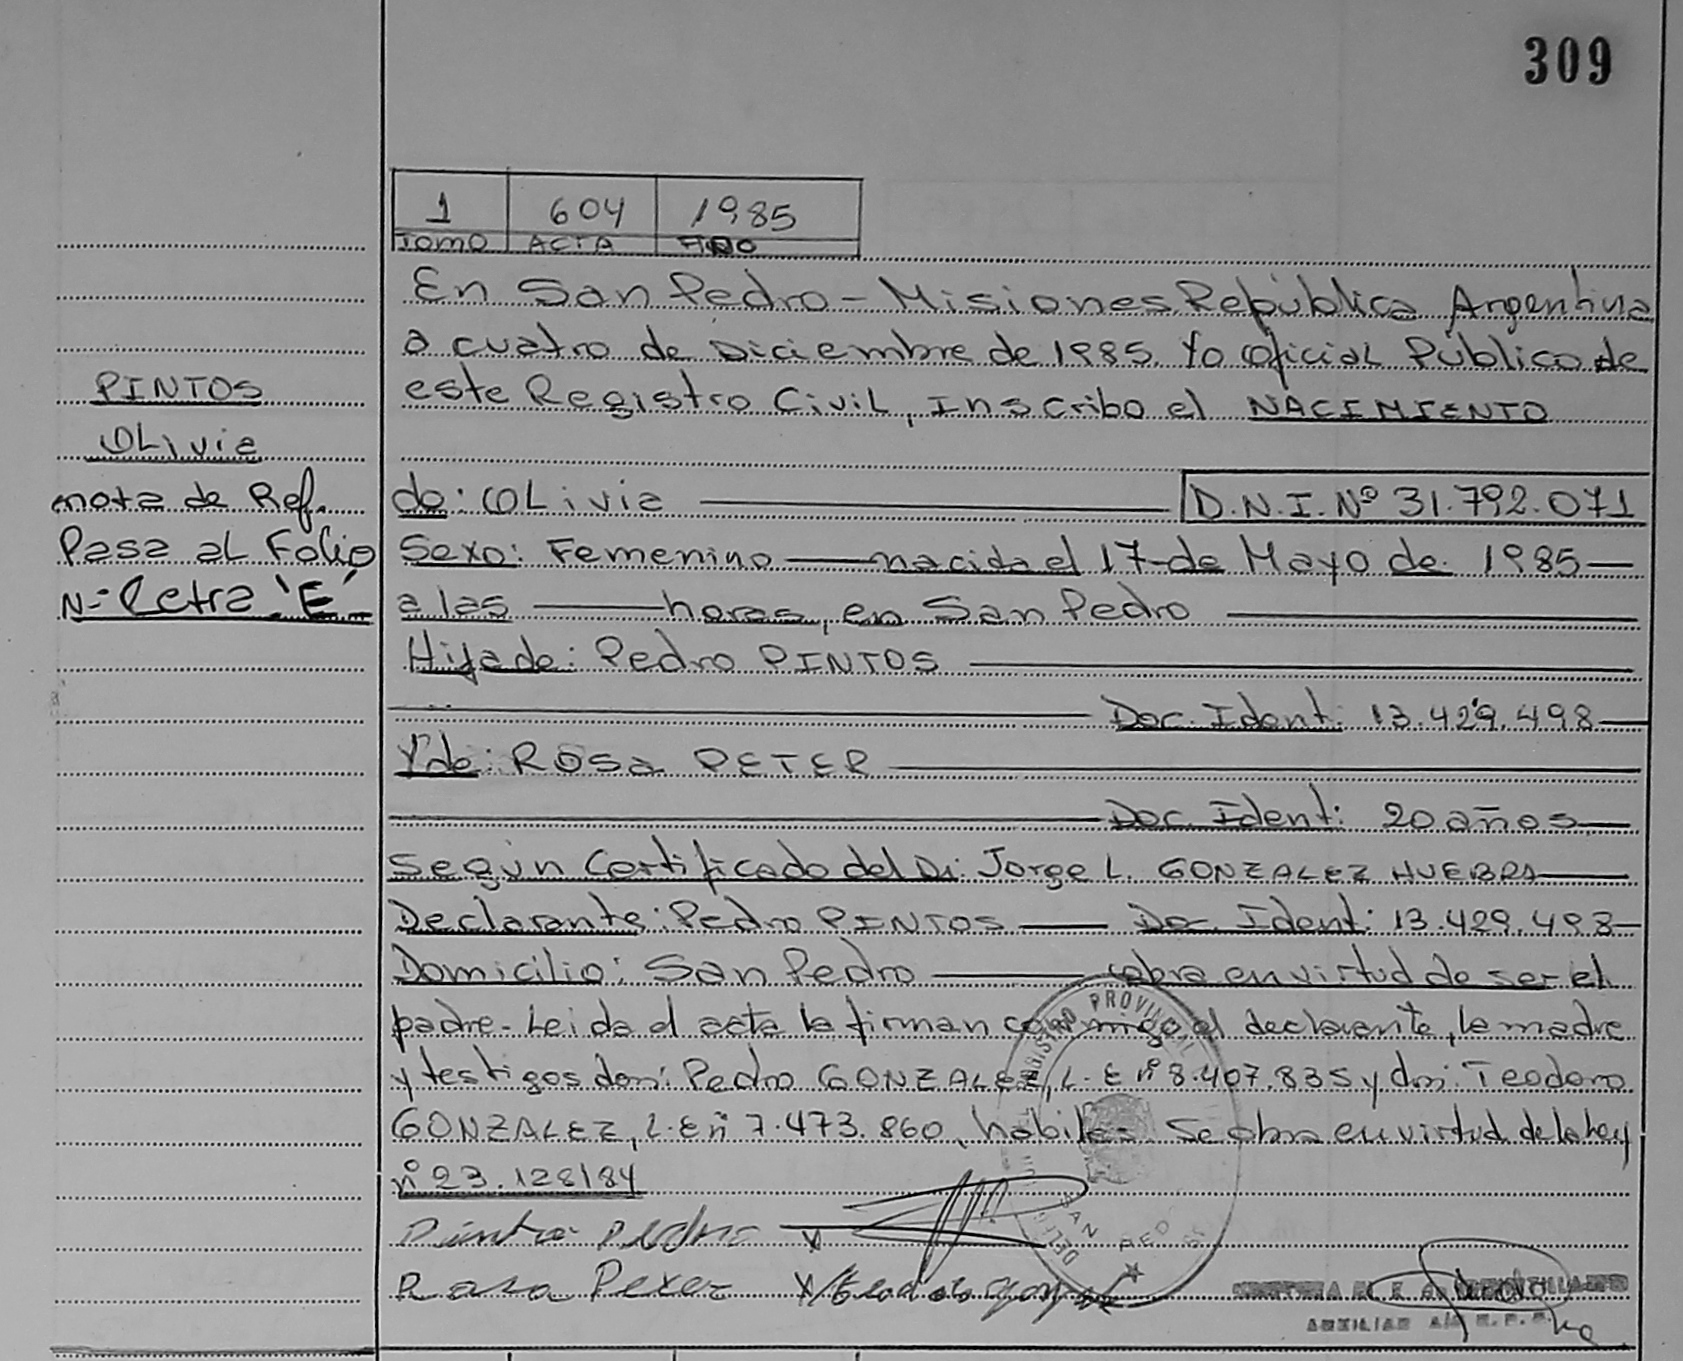 309
1 604 1985
TOMO ACTA AÑO
En San Pedro - Misiones República Argentina
a cuatro de Diciembre de 1985. Yo oficial Público de
este Registro Civil, Inscribo el NACIMIENTO
PINTOS
OLivia
nota de Ref.
Pasa al Folio
N-º Letra "E"
de: OLivia D.N.I. Nº 31.792.071
Sexo: Femenino nacida el 17 de Mayo de 1985
a las horas, en San Pedro
Hija de: Pedro PINTOS
Doc. Ident: 13.429.498
Y de: ROSA PETER
Doc. Ident: 20 años
Según Certificado del Dr: Jorge L. GONZALEZ HUEBRA
Declarante: Pedro PINTOS Doc. Ident: 13.429.498
Domicilio: San Pedro obra en virtud de ser el
padre. Leida el acta la firman conmigo el declarante, la madre
y testigos don: Pedro GONZALEZ, L. E nº 8.407.835 y don: Teodoro
GONZALEZ, L. E nº 7.473.860, habiles. Se obra en virtud de la Ley
nº 23.128/84
Pintos Pedro
Rosa Peter
REGISTRO PROVINCIAL
SAN PEDRO
AUXILIAR